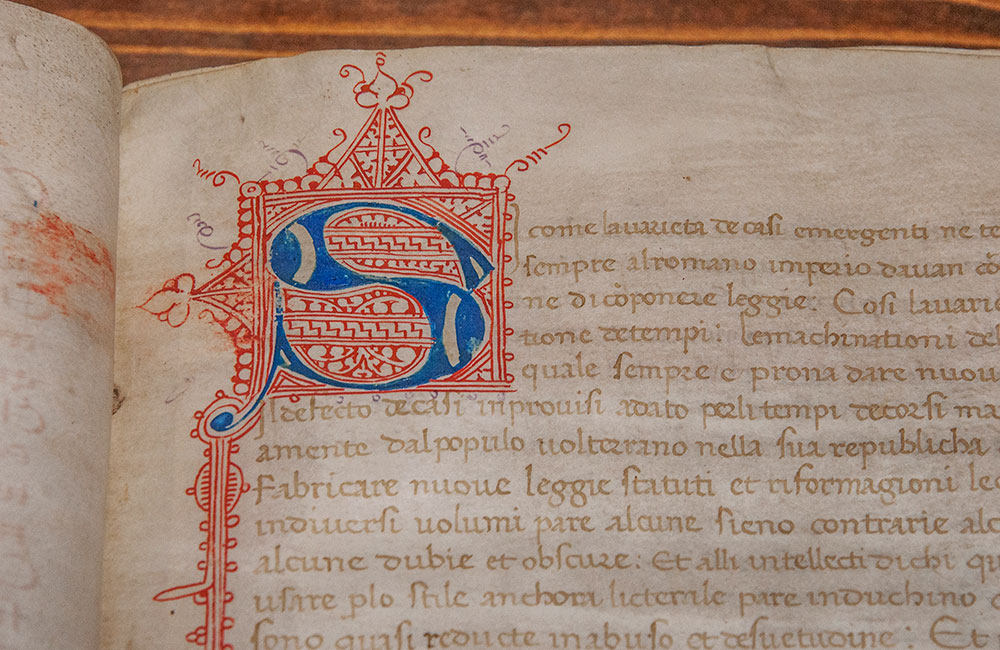 S
come lavarieta de casi emergenti ne te
sempre alromano imperio davan cō
ne di cōponere leggie: Cosi lavari
tione detempi: lemachinationi del
quale sempre e prona dare nuou
Il defecto de casi inprovisi adato perli tempi decorsi ma
amente dalpopulo volterrano nella sua republicha
Fabricare nuove leggie statuti et riformagioni le
indiversi volumi pare alcune sieno contrarie alc
alcune dubie et obscure: Et alli intellecti di chi qu
usare plo stile anchora licterale pare induchino
sono quasi reducte inabuso et desuetudine: Et